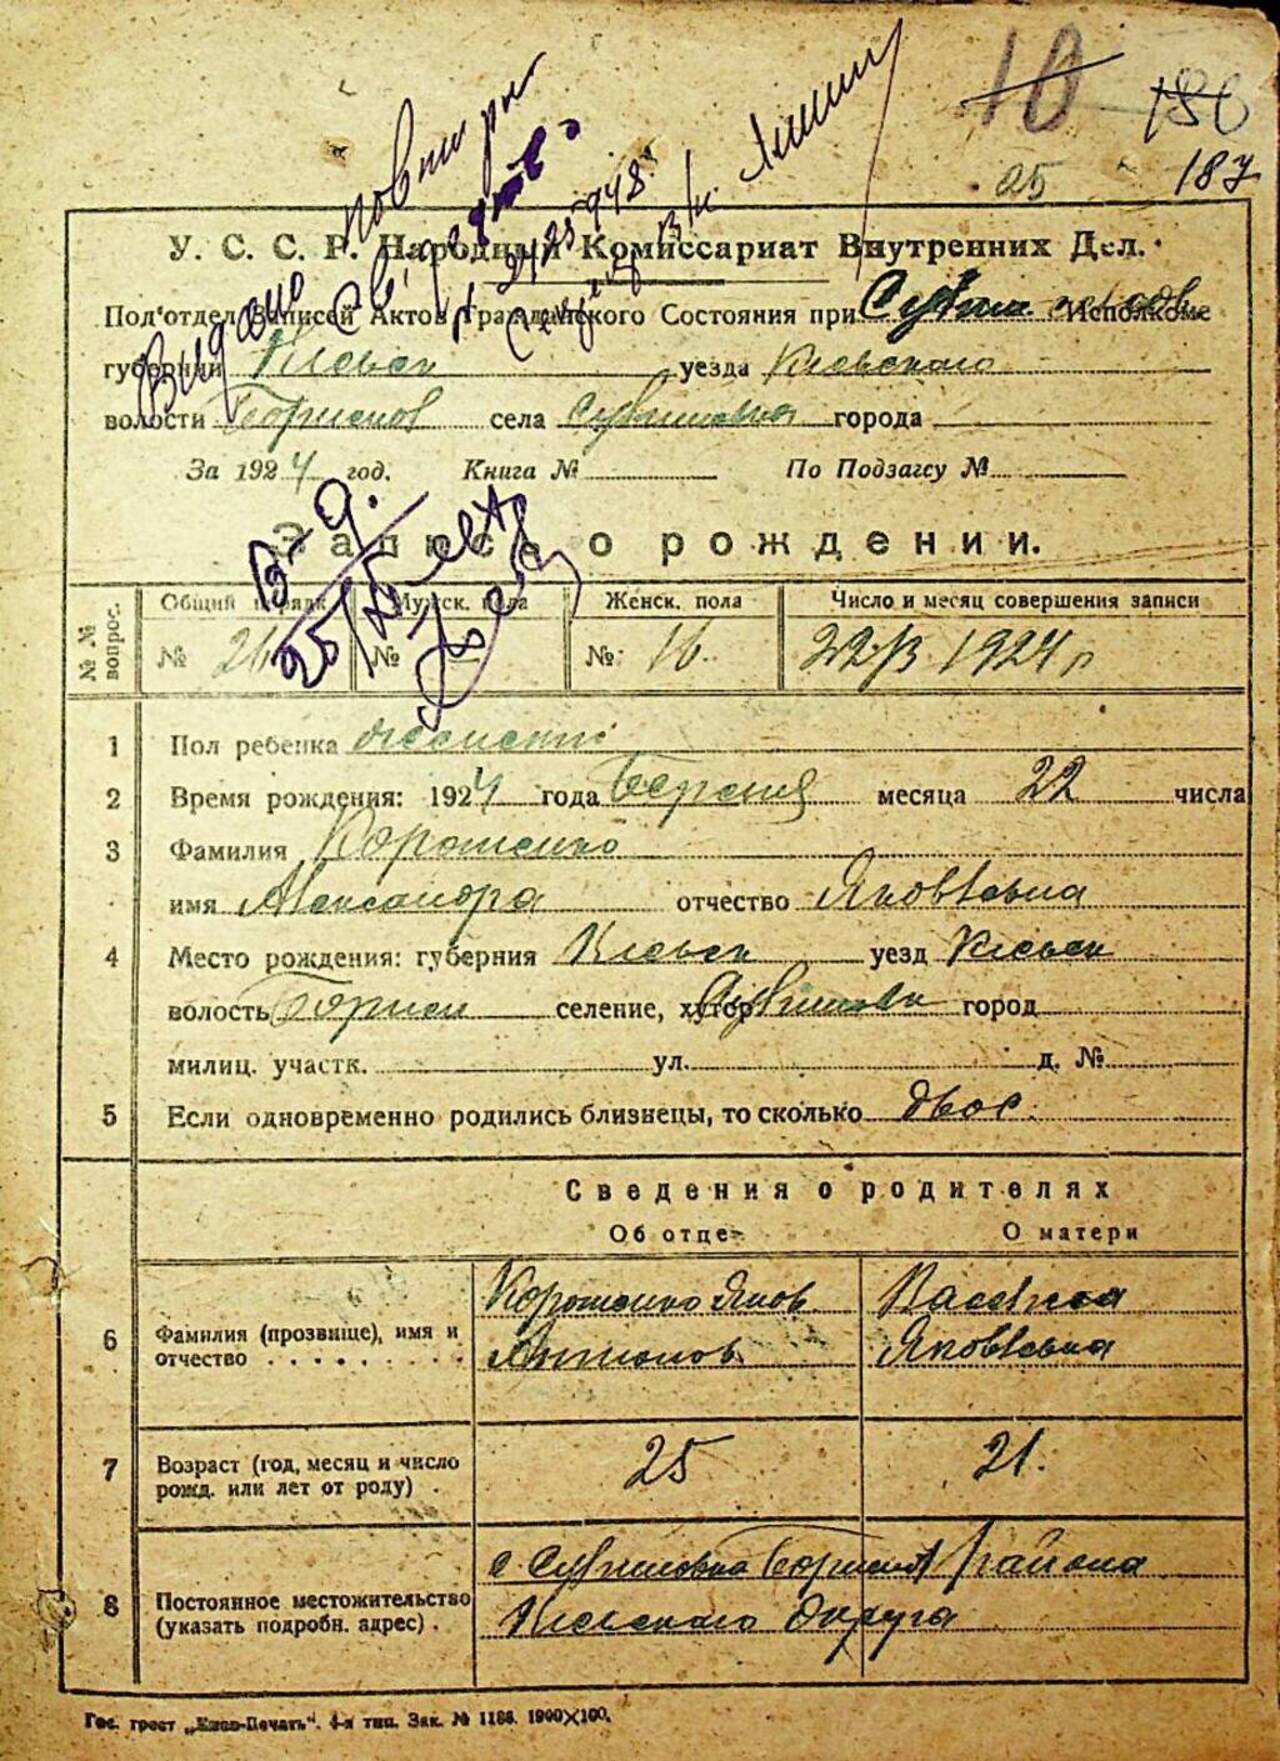 10 186
25 187
Видано повторн
Свідоцтво
У. С. С. Р. Народный Комиссариат Внутренних Дел.
Подотдел Записей Актов Гражданского Состояния при Исполкоме
губернии Киевск уезда Киевского
волости села города
За 1924 год. Книга № По Подзагсу №
Запись о рождении.
№ № вопрос. Общий порядк Мужск. пола Женск. пола Число и месяц совершения записи
№ 26 № — № 16. 22/3 1924 г
1 Пол ребенка
2 Время рождения: 1924 года Березня месяца 22 числа
3 Фамилия Корошенко
имя Александра отчество Яковлевна
4 Место рождения: губерния Киевск уезд Киевск
волость селение, хутор город
милиц. участк. ул. д. №
5 Если одновременно родились близнецы, то сколько двое.
Сведения о родителях
Об отце О матери
6 Фамилия (прозвище), имя и Корошенко Яков
отчество Антонов Яковлевна
7 Возраст (год, месяц и число 25 21.
рожд. или лет от роду) .
района
8 Постоянное местожительство Киевского Округа
(указать подробн. адрес) .
Гос. трест „Киев-Печать“. 4-я тип. Зак. № 1186. 1900×100.